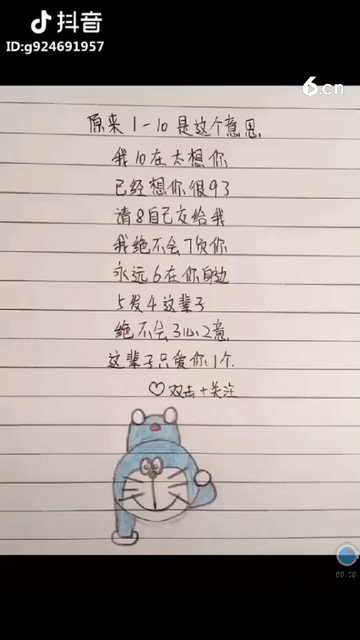 抖音
ID:g924691957
6.cn
原来1-10是这个意思
我10在太想你
已经想你很93
请8自己交给我
我绝不会7负你
永远6在你身边
5发4这辈子
绝不会3心2意
这辈子只爱你1个.
♡双击+关注